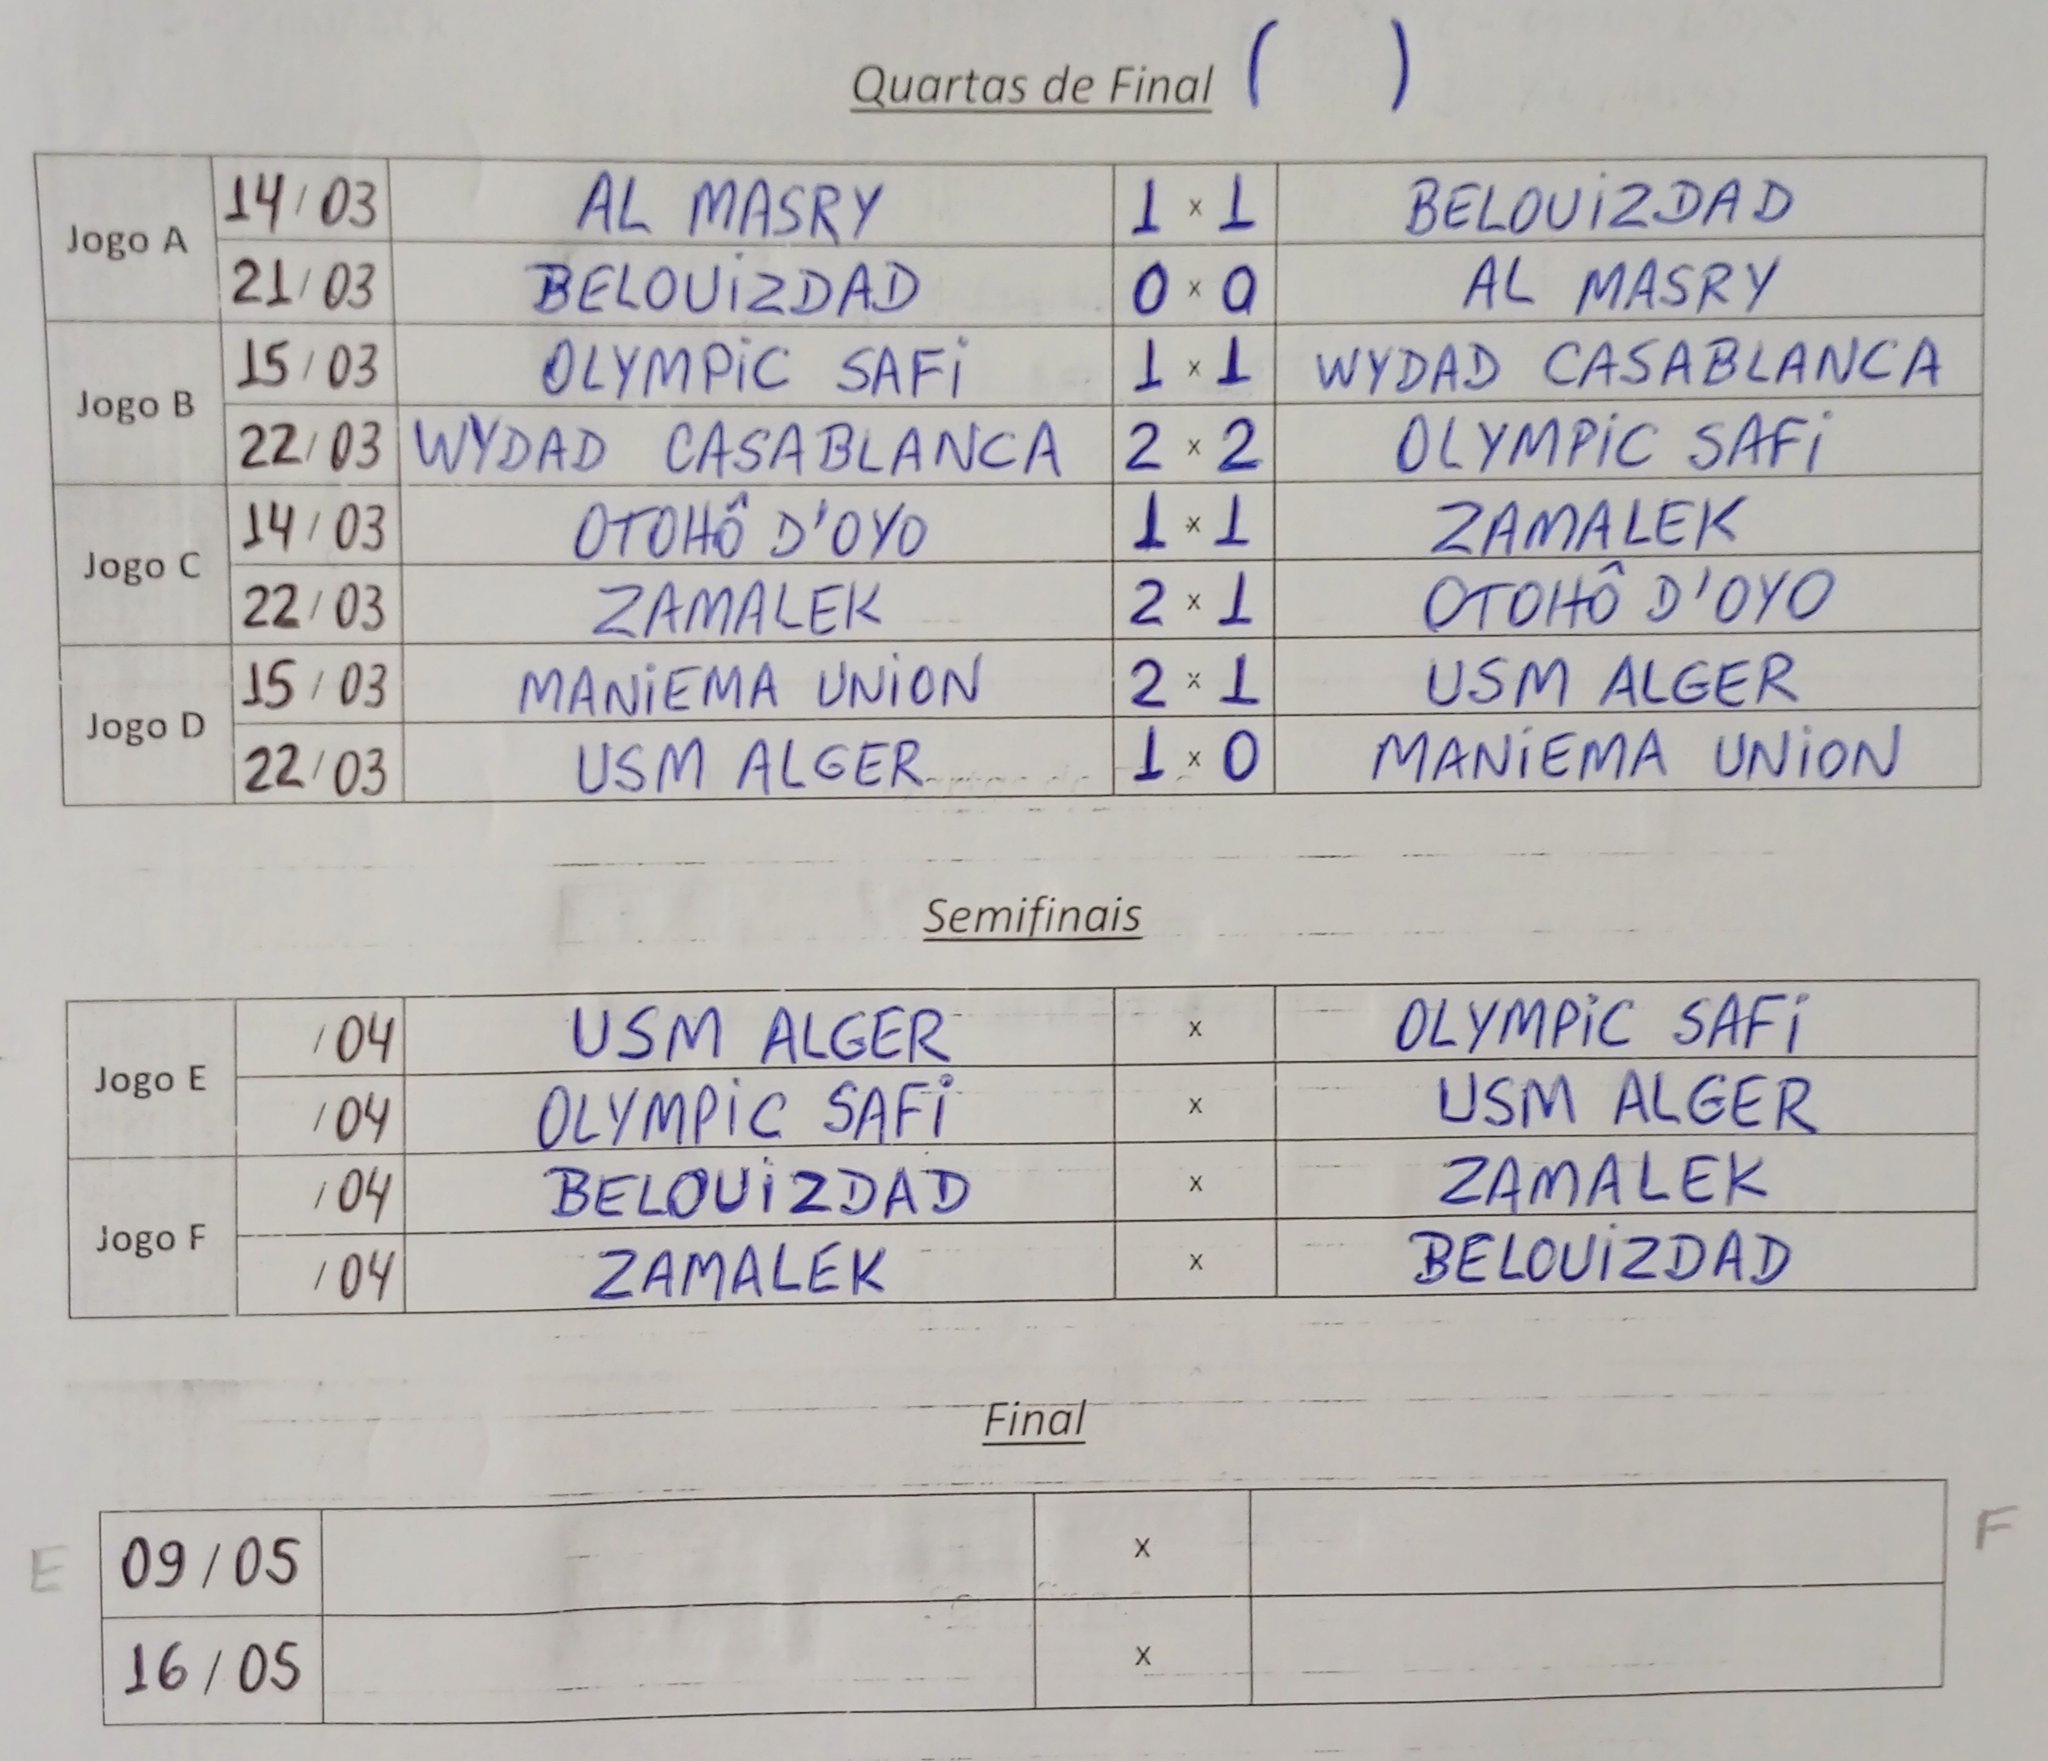 Quartas de Final ( )
Jogo A
14/03 AL MASRY 1 x 1 BELOUiZDAD
21/03 BELOUiZDAD 0 x 0 AL MASRY
Jogo B
15/03 OLYMPiC SAFi 1 x 1 WYDAD CASABLANCA
22/03 WYDAD CASABLANCA 2 x 2 OLYMPiC SAFi
Jogo C
14/03 OTOHÔ D'OYO 1 x 1 ZAMALEK
22/03 ZAMALEK 2 x 1 OTOHÔ D'OYO
Jogo D
15/03 MANiEMA UNiON 2 x 1 USM ALGER
22/03 USM ALGER 1 x 0 MANiEMA UNiON
Semifinais
Jogo E
/04 USM ALGER x OLYMPiC SAFi
/04 OLYMPiC SAFi x USM ALGER
Jogo F
/04 BELOUiZDAD x ZAMALEK
/04 ZAMALEK x BELOUiZDAD
Final
E 09/05 x F
16/05 x